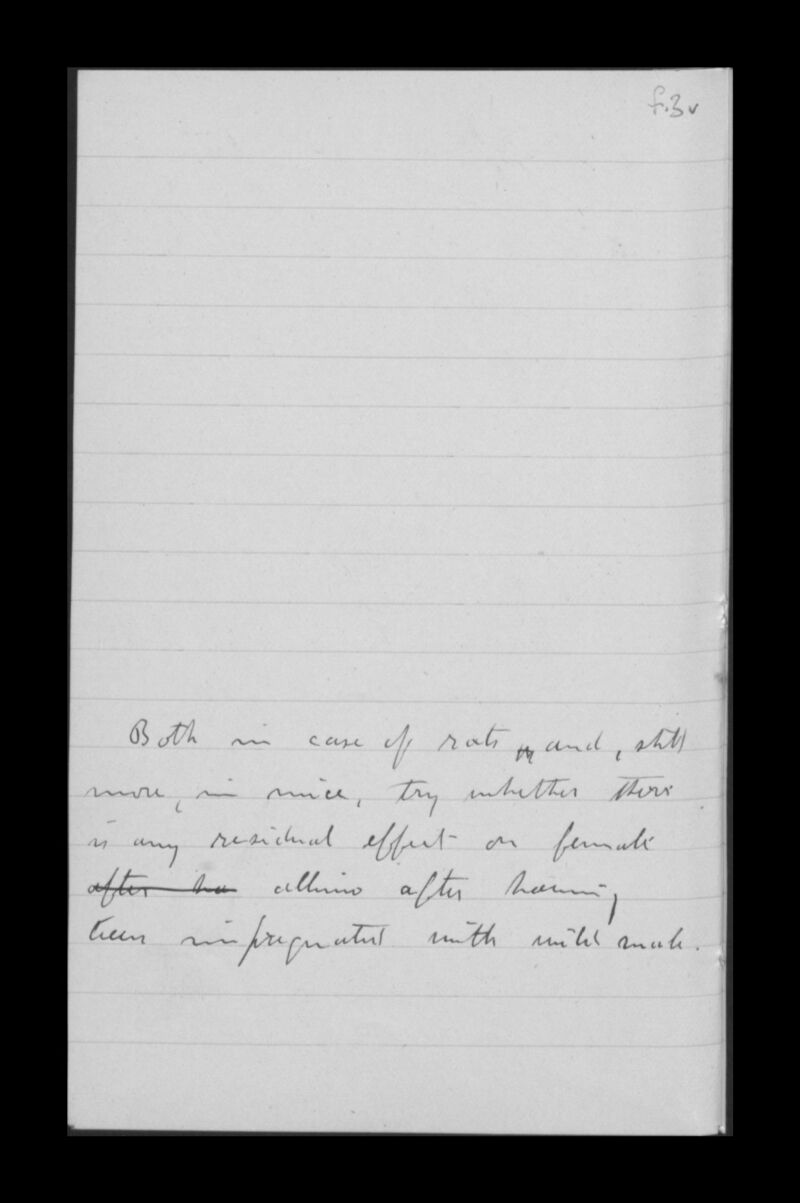 f.3v
Both in case of rats and, still
more, in mice, try whether there
is any residual effect on female
after ha albino after having
been impregnated with wild male.